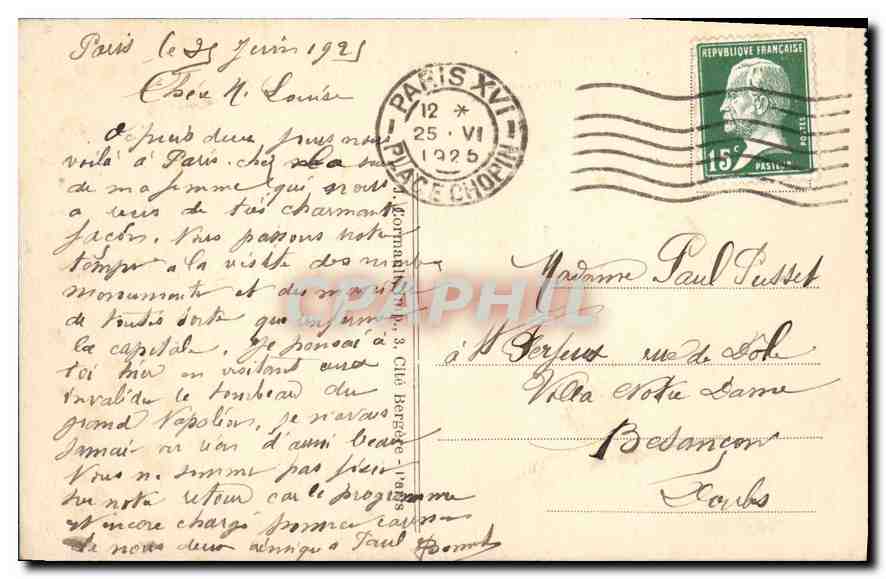 Paris le 25 Juin 1925
Chère M. Louise
Depuis deux jours nous
voilà à Paris. chez la
de ma femme qui nous
a reçus de très charmante
façon. Nous passons notre
temps a la visite des
monuments et des
de toutes sorte que
la capitale. Je pensai à
toi hier en visitant aux
invalides le tombeau du
grand Napoléon, je n'avais
jamais vu rien d'aussi beau
Nous ne somme pas
sur notre retour car le programme
est encore chargé
de nous deux ainsi qu'a Paul
PARIS XVI
12 *
25 · VI
1925
PLACE CHOPIN
REPUBLIQUE FRANÇAISE
15c
POSTES
PASTEUR
Madame Paul Pusset
à St Ferjeux rue de Dole
Villa Notre Dame
Besançon
Doubs
Cormault, Imp., 3, Cité Bergère - Paris
CPAPHIL